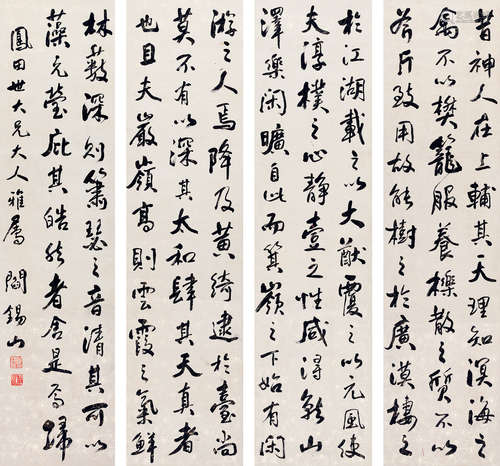 昔神人在上輔其天理知溟海之
禽不以樊籠服養櫟散之質不以
斧斤致用故能樹之於廣漠棲之
於江湖載之以大猷覆之以元風使
夫淳樸之心靜壹之性咸得就山
澤樂閑曠自此而箕嶺之下始有閑
游之人焉降及黃綺逮於臺尚
莫不有以深其太和肆其天真者
也且夫巖嶺高則雲霞之氣鮮
林藪深則簫瑟之音清其可以
藻元瑩庇其皓然者舍是焉歸
鳳田世大兄大人雅屬 閻錫山